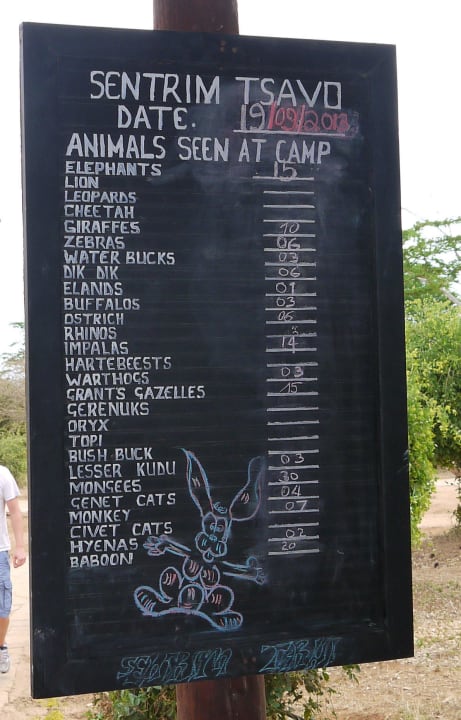 SENTRIM TSAVO
DATE. 19/09/2013
ANIMALS SEEN AT CAMP
ELEPHANTS 15
LION
LEOPARDS
CHEETAH
GIRAFFES 10
ZEBRAS 06
WATER BUCKS 03
DIK DIK 06
ELANDS 01
BUFFALOS 03
OSTRICH 06
RHINOS
IMPALAS 14
HARTEBEESTS
WARTHOGS 03
GRANT'S GAZELLES 15
GERENUKS
ORYX
TOPI
BUSH BUCK
LESSER KUDU 03
MONGEES 30
GENET CATS 04
MONKEY 07
CIVET CATS
HYENAS 02
BABOON 20